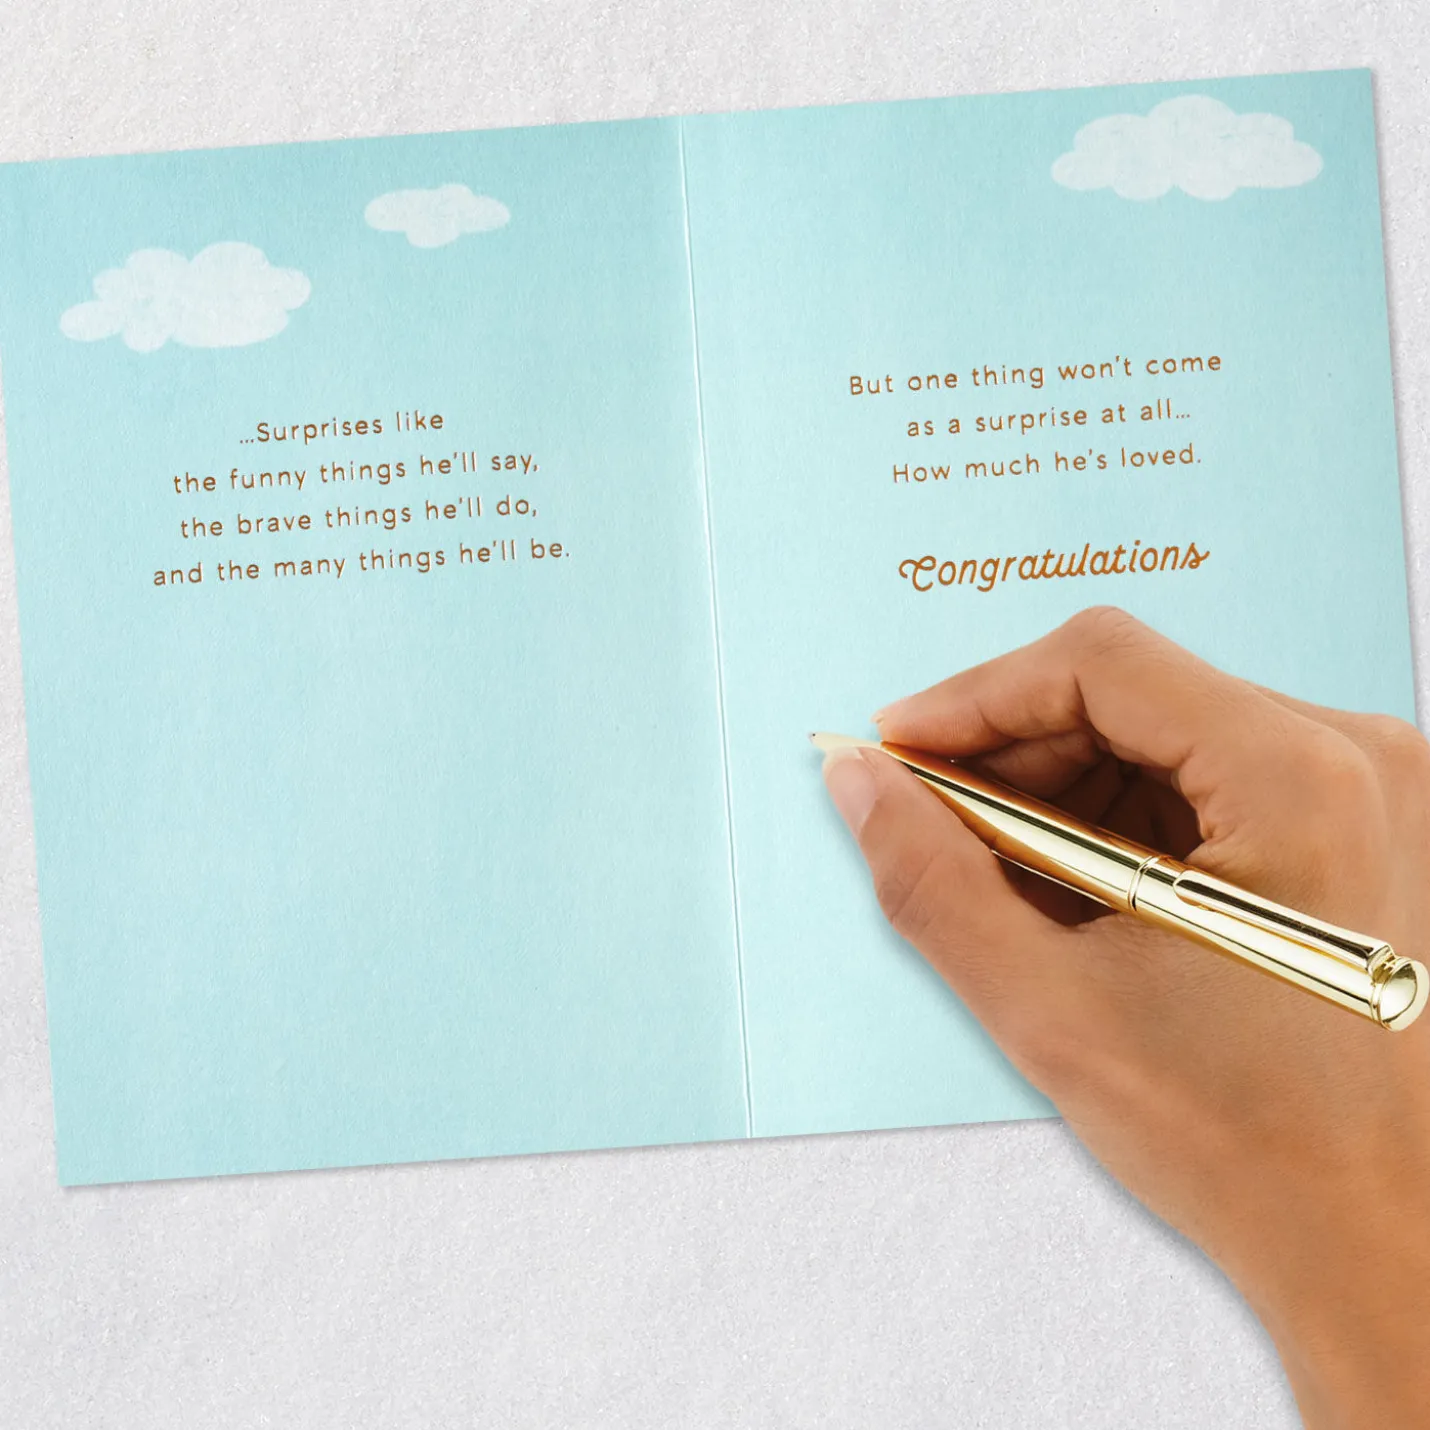 ...Surprises like
the funny things he'll say,
the brave things he'll do,
and the many things he'll be.
But one thing won't come
as a surprise at all...
How much he's loved.
Congratulations